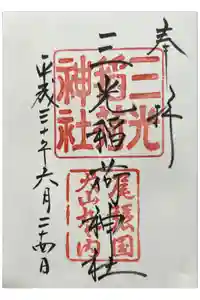 奉拝
三光稲荷神社
平成三十年六月二十四日
三光
稲荷
神社
尾張国
犬山城内